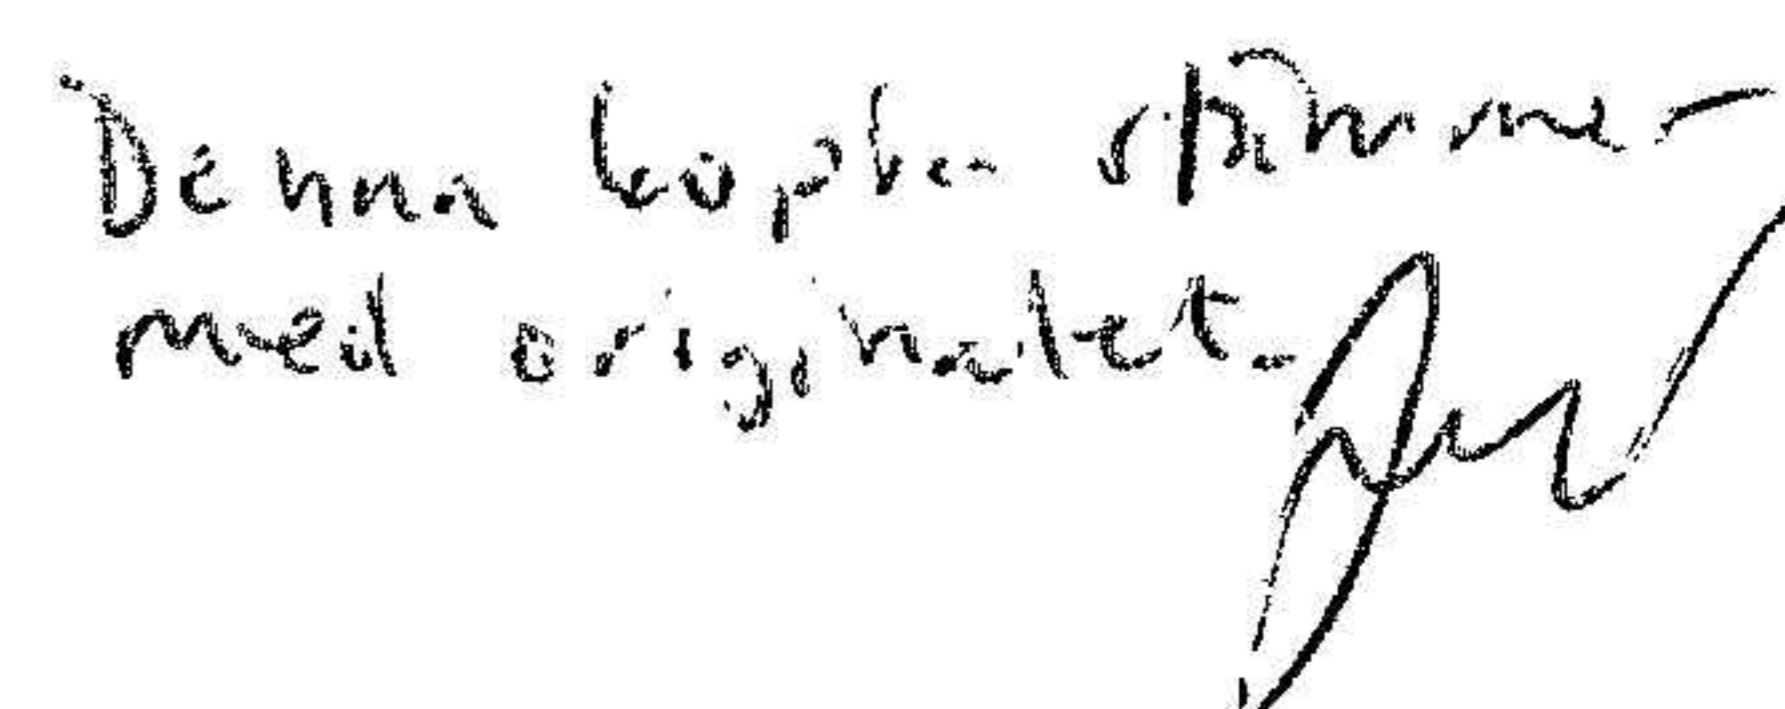 Denna kopia stämmer
med originalet.